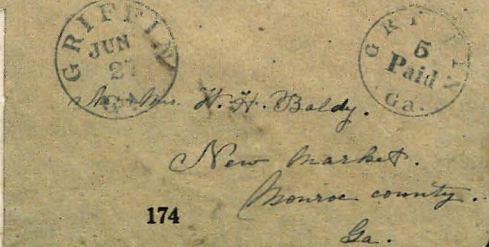 GRIFFIN
JUN
27
GA.
GRIFFIN
5
Paid
Ga.
Mrs. W. H. Baldy.
New Market.
Monroe county.
Ga.
174